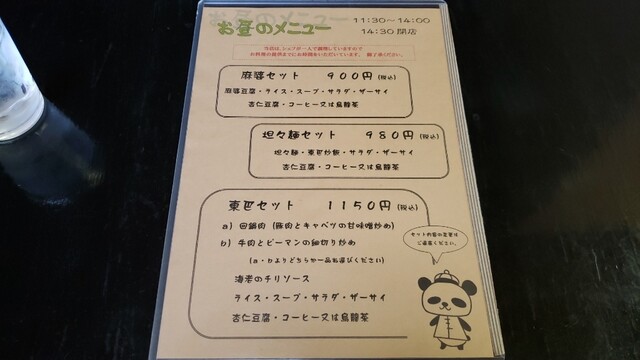 お昼のメニュー
11:30～14:00
14:30 閉店
当店は、シェフが一人で調理していますので
お料理の提供までにお時間をいただいています。 御了承ください。
麻婆セット 900円 (税込)
麻婆豆腐・ライス・スープ・サラダ・ザーサイ
杏仁豆腐・コーヒー又は烏龍茶
坦々麺セット 980円 (税込)
坦々麺・東巴炒飯・サラダ・ザーサイ
杏仁豆腐・コーヒー又は烏龍茶
東巴セット 1150円 (税込)
a) 回鍋肉 (豚肉とキャベツの甘味噌炒め)
b) 牛肉とピーマンの細切り炒め
(a・bよりどちらか一品お選びください)
海老のチリソース
ライス・スープ・サラダ・ザーサイ
杏仁豆腐・コーヒー又は烏龍茶
セット内容の変更は
ご遠慮ください。